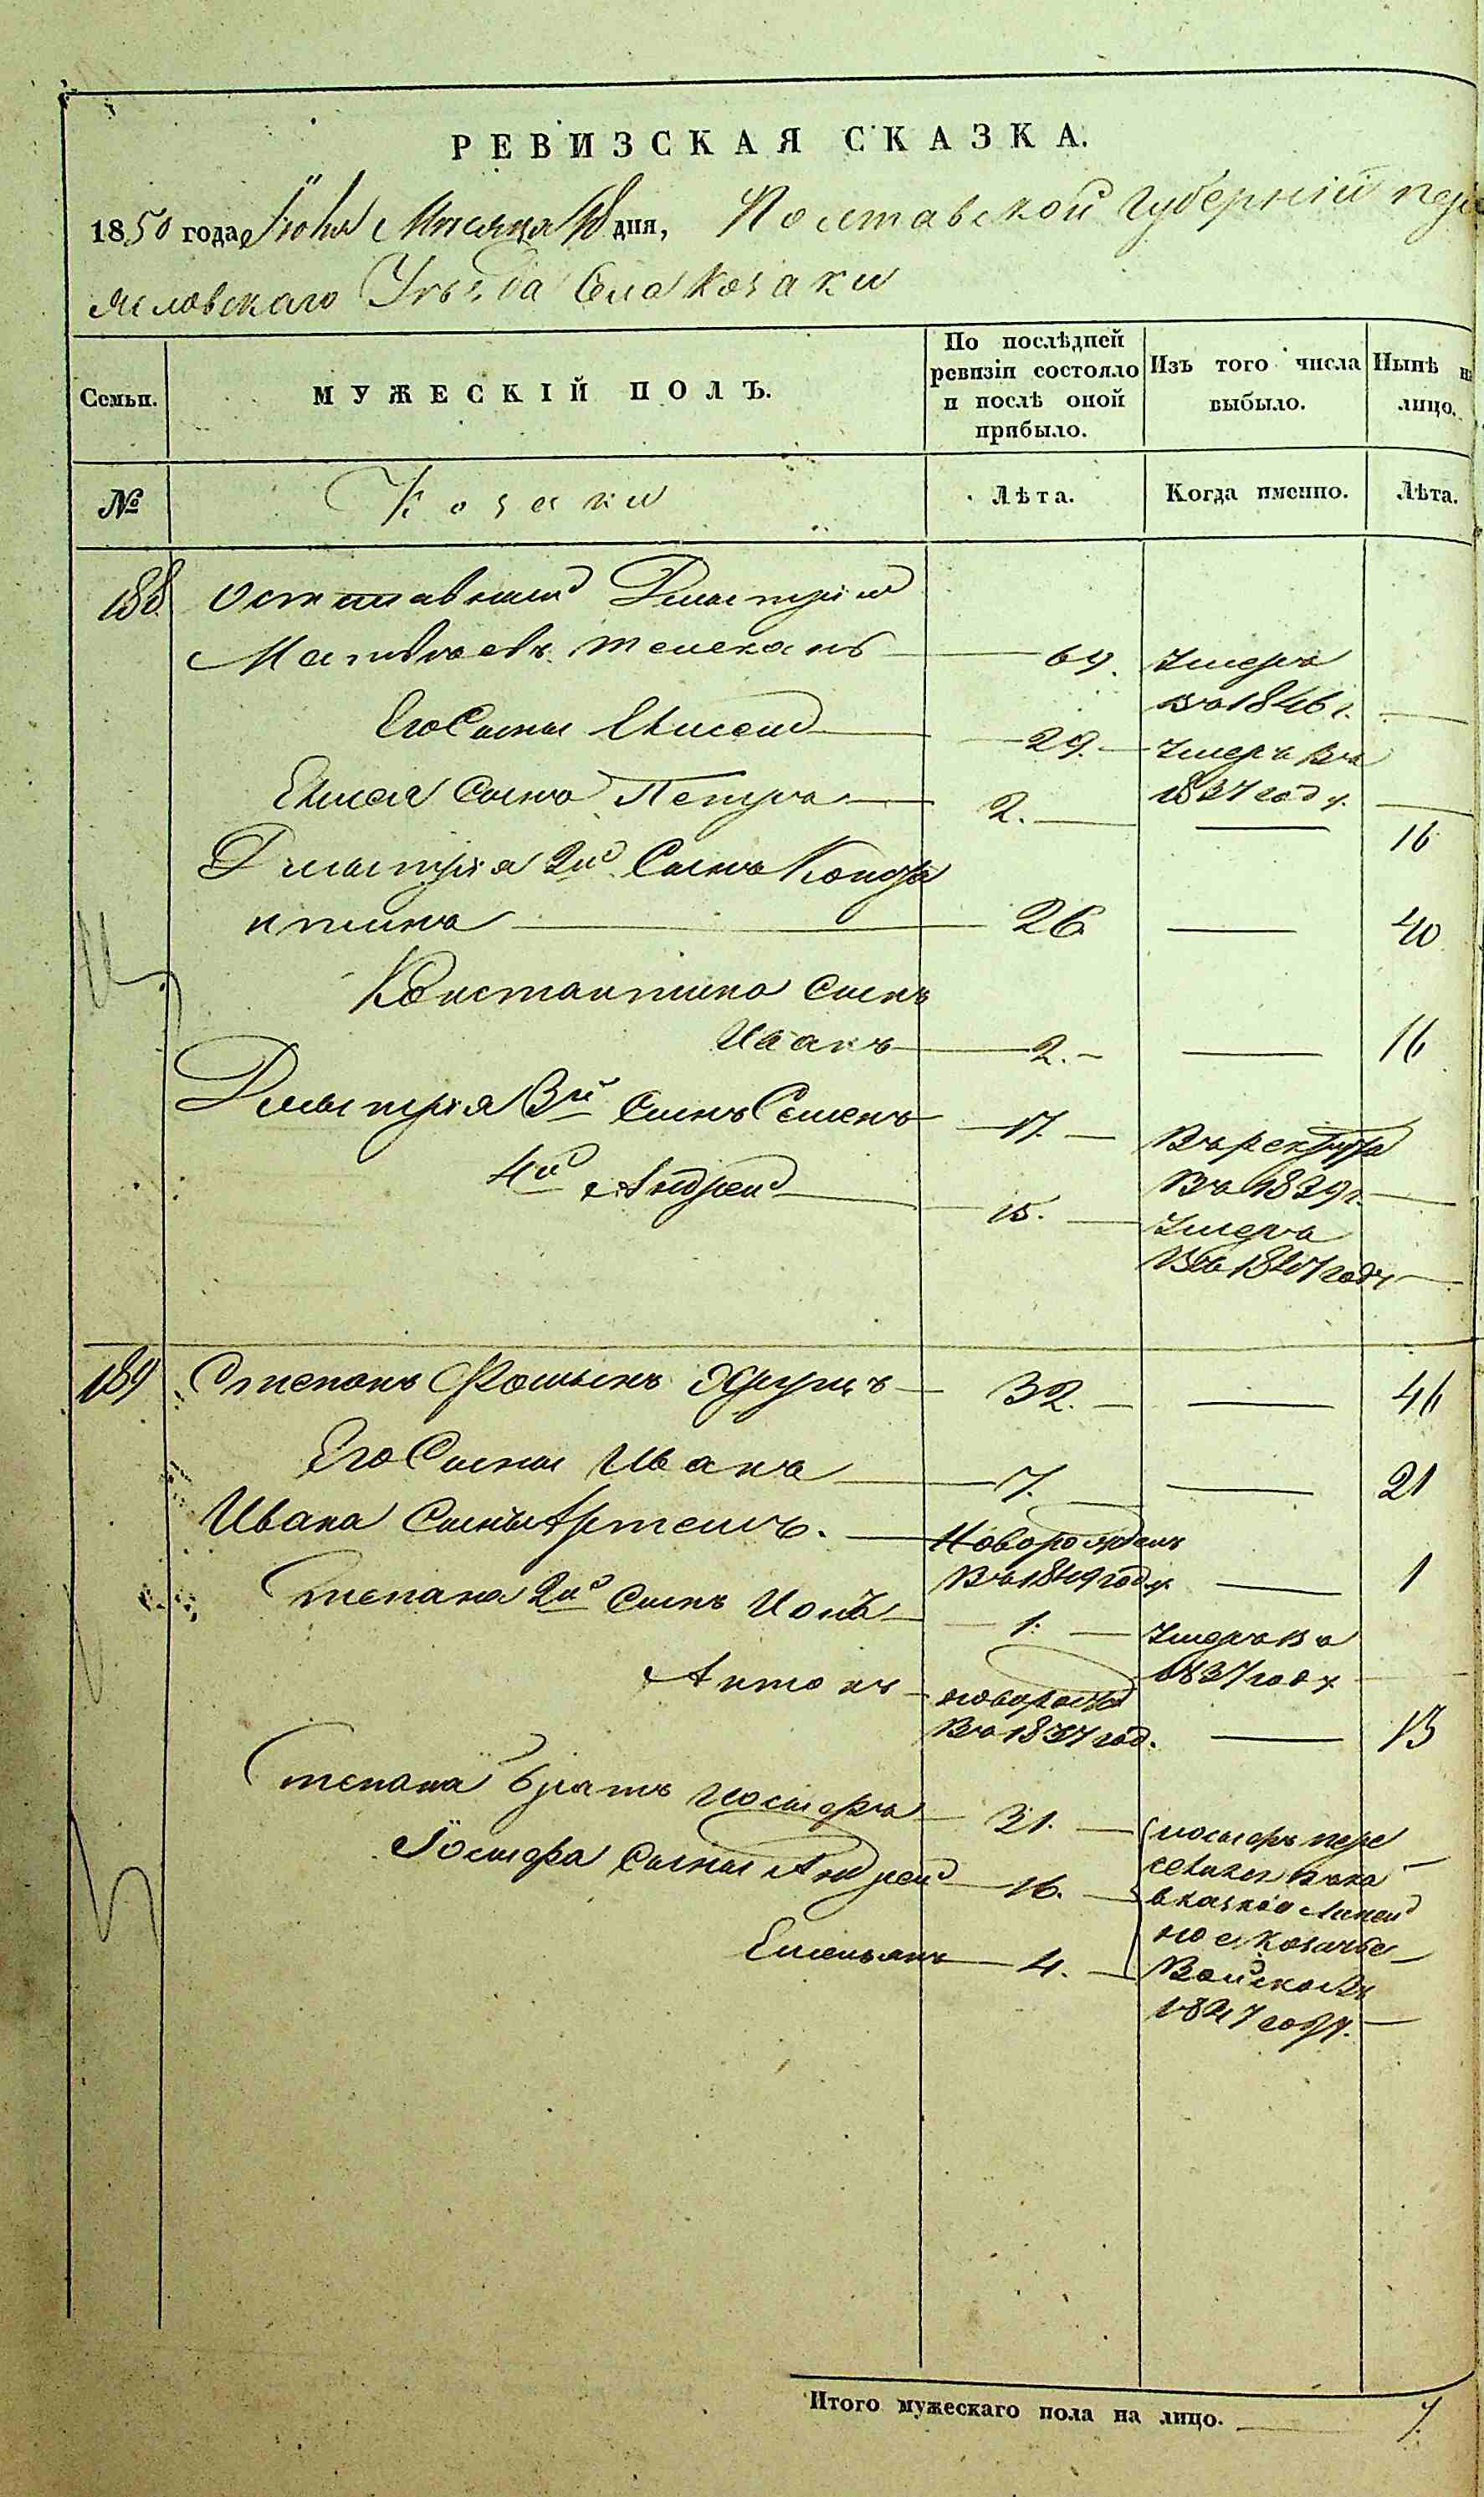 РЕВИЗСКАЯ СКАЗКА.
1850 года Июня Месяца 18 дня, Полтавской Губерніи пере
яславского Уезда Села Козаки
Семьи.
МУЖЕСКІЙ ПОЛЪ.
По послѣдней ревизіи состояло и послѣ оной прибыло.
Изъ того числа выбыло.
Нынѣ на лицо.
№
Козаки
Лѣта.
Когда именно.
Лѣта.
188
Дмытрій
69. Умеръ
въ 1846 г.
Его Сыны Елисей 29. Умеръ въ
1837 году.
Елисея Сынъ Петръ 2. 16
Дмытрія 2й Сынъ
26 40
Константина Сынъ
Иванъ 2. 16
Дмытрія 3й Сынъ Семенъ 17. Въ рекруты
Въ 1839 г.
4й Андрей 15. Умеръ
Въ 1847 году
189 Степанъ Фоминъ 32. 46
Его Сыны Иванъ 7. 21
Ивана Сынъ Артемъ. Новорожденъ
Въ 1849 году. 1
Степана 2й Сынъ 1. Умеръ въ
1837 году
Антонъ новорожд
Въ 1837 год. 13
Степана братъ Иосыфъ 31. Иосыфъ пере
Іосыфа Сыны Андрей 16.
селился въ Ка
вказкое Линей
Емельянъ 4.
ное Козачье
Войско въ
1847 году.
Итого мужескаго пола на лицо. 7